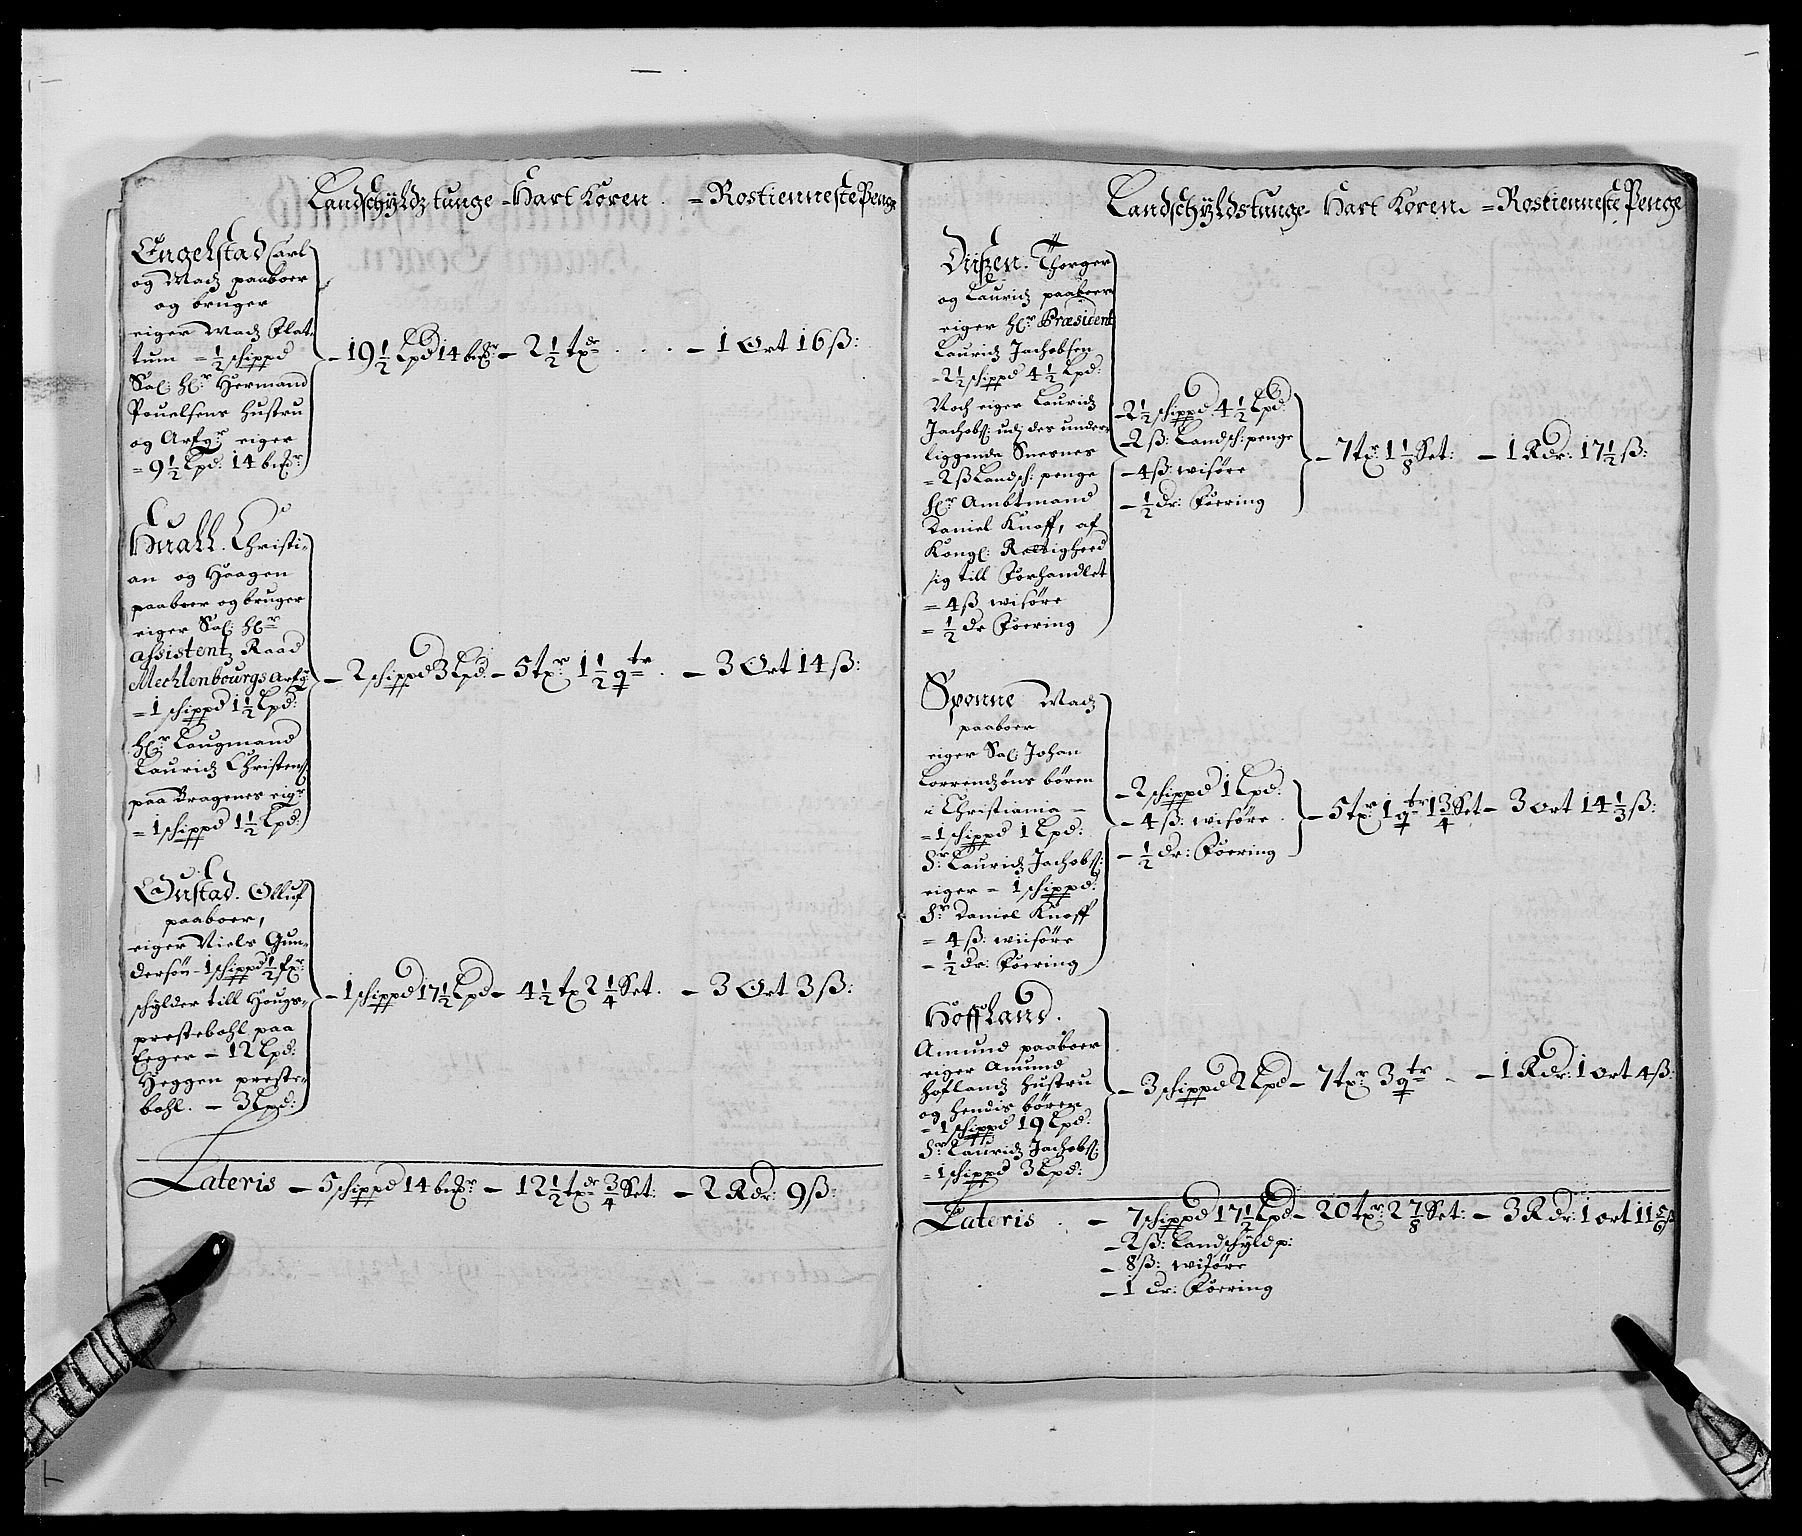 Landschyldz tunge - Hart Koren. - Rostienneste Penge
Engelstad Carl
og Madz paaboer
og bruger
eiger Madz Flat-
tum = 1/2 schippd
Sal: Hr: Hermand
Pouelsens Hustru
og Arfgr: eiger
= 9 1/2 Lpd: 14
- 19 1/2 Lpd 14 - 2 1/2 tdr - 1 Ort 16 ß:
Huall. Christi-
an og Haagen
paaboer og bruger
eiger Sal: Hr:
assistentz Raad
Mechlenbourgs arfg:
= 1 schippd 1 1/2 Lpd:
Hr: Laugmand
Lauridz Christens:
paa Bragenes eigr
= 1 schippd 1 1/2 Lpd:
- 2 schippd 3 Lpd. - 5 tr: 1 1/2 qtr. - 3 Ort 14 ß:
Oustad. Olluf
paaboer,
eiger Niels Gun-
dersøn - 1 schippd 1/2
schylder till Hougs-
prestebohl paa
Eger - 12 Lpd:
Heggen preste-
bohl. - 3 Lpd:
- 1 schippd 17 1/2 Lpd - 4 1/2 t 2 1/4 Set. - 3 Ort 3 ß:
Lateris - 5 schippd 14 - 12 1/2 tdr 3/4 Set: - 2 Rdr: 9 ß:
Landschyldstunge - Hart Koren. = Rostienneste Penge
Thorger
og Lauridz paaboer
eiger Hr: Præsident
Lauridz Jachobsen
= 2 1/2 schippd 4 1/2 Lpd:
Noch eiger Lauridz
Jachobs: udj des under
liggende Snesnes
= 2 ß Landsch: penge
Hr: Ambtmand
Daniel Knoff, af
Kongl: Rettigheed
sig till Forhandlet
= 4 ß wisøre
= 1/2 dr Foering
- 2 1/2 schippd. 4 1/2 Lpd:
- 2 ß: Landsch: penge
- 4 ß: wisøre
- 1/2 dr: Foering
- 7 tr: 1 1/8 Set: - 1 Rdr: 17 1/2 ß:
Sponne Madz
paaboer
eiger Sal: Johan
Lorrendzøns børen
i Christiania -
= 1 schippd 1 Lpd:
Hr: Lauridz Jachobs:
eiger = 1 schippd:
Hr: Daniel Knoff
= 4 ß: wiisøre
- 1/2 dr: Foering
- 2 schippd 1 Lpd:
- 4 ß: wisøre.
- 1/2 dr: Foering
- 5 tr: 1 qtr 1 3/4 Set - 3 Ort 14 1/3 ß:
Hoffland.
Amund paaboer
eiger Amund
Hoflandz Hustru
og hendis børen
= 1 schippd 19 Lpd:
Hr: Lauridz Jachobs:
= 1 schippd 3 Lpd:
- 3 schippd 2 Lpd - 7 tr: 3 qtr - 1 Rdr: 1 Ort 4 ß:
Lateris. - 7 schippd 17 1/2 Lpd - 20 tr: 2 7/8 Set: - 3 Rdr: 1 ort 11 5/6 ß
- 2 ß: Landschyld p:
- 8 ß: wisøre
- 1 dr: Foering